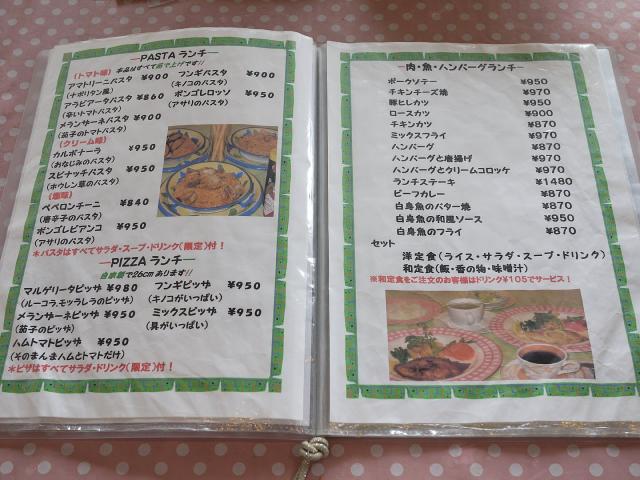 ―PASTA ランチ―
(トマト味) 本品はすべて茹で上げです!!
アマトリーニパスタ ¥900 フンギパスタ ¥900
(ナポリタン風) (キノコのパスタ)
アラビアータパスタ ¥860 ボンゴレロッソ ¥950
(辛いトマトパスタ) (アサリのパスタ)
メランザーネパスタ ¥900
(茄子のトマトパスタ)
(クリーム味)
カルボナーラ ¥950
(おなじみのパスタ)
スピナッチパスタ ¥950
(ホウレン草のパスタ)
(塩味)
ペペロンチーニ ¥840
(唐辛子のパスタ)
ボンゴレビアンコ ¥950
(アサリのパスタ)
*パスタはすべてサラダ・スープ・ドリンク(限定)付!
―PIZZA ランチ―
自家製で26cmあります!!
マルゲリータピッザ ¥980 フンギピッザ ¥950
(ルーコラ,モッラレラのピッザ) (キノコがいっぱい)
メランザーネピッザ ¥950 ミックスピッザ ¥950
(茄子のピッザ) (具がいっぱい)
ハムトマトピッザ ¥950
(そのまんまハムとトマトだけ)
*ピザはすべてサラダ・ドリンク(限定)付!
―肉・魚・ハンバーグランチ―
ポークソテー ¥950
チキンチーズ焼 ¥970
豚ヒレカツ ¥950
ロースカツ ¥900
チキンカツ ¥870
ミックスフライ ¥970
ハンバーグ ¥870
ハンバーグと唐揚げ ¥970
ハンバーグとクリームコロッケ ¥970
ランチステーキ ¥1480
ビーフカレー ¥870
白身魚のバター焼 ¥870
白身魚の和風ソース ¥950
白身魚のフライ ¥870
セット
洋定食(ライス・サラダ・スープ・ドリンク)
和定食(飯・香の物・味噌汁)
※和定食をご注文のお客様はドリンク¥105でサービス!